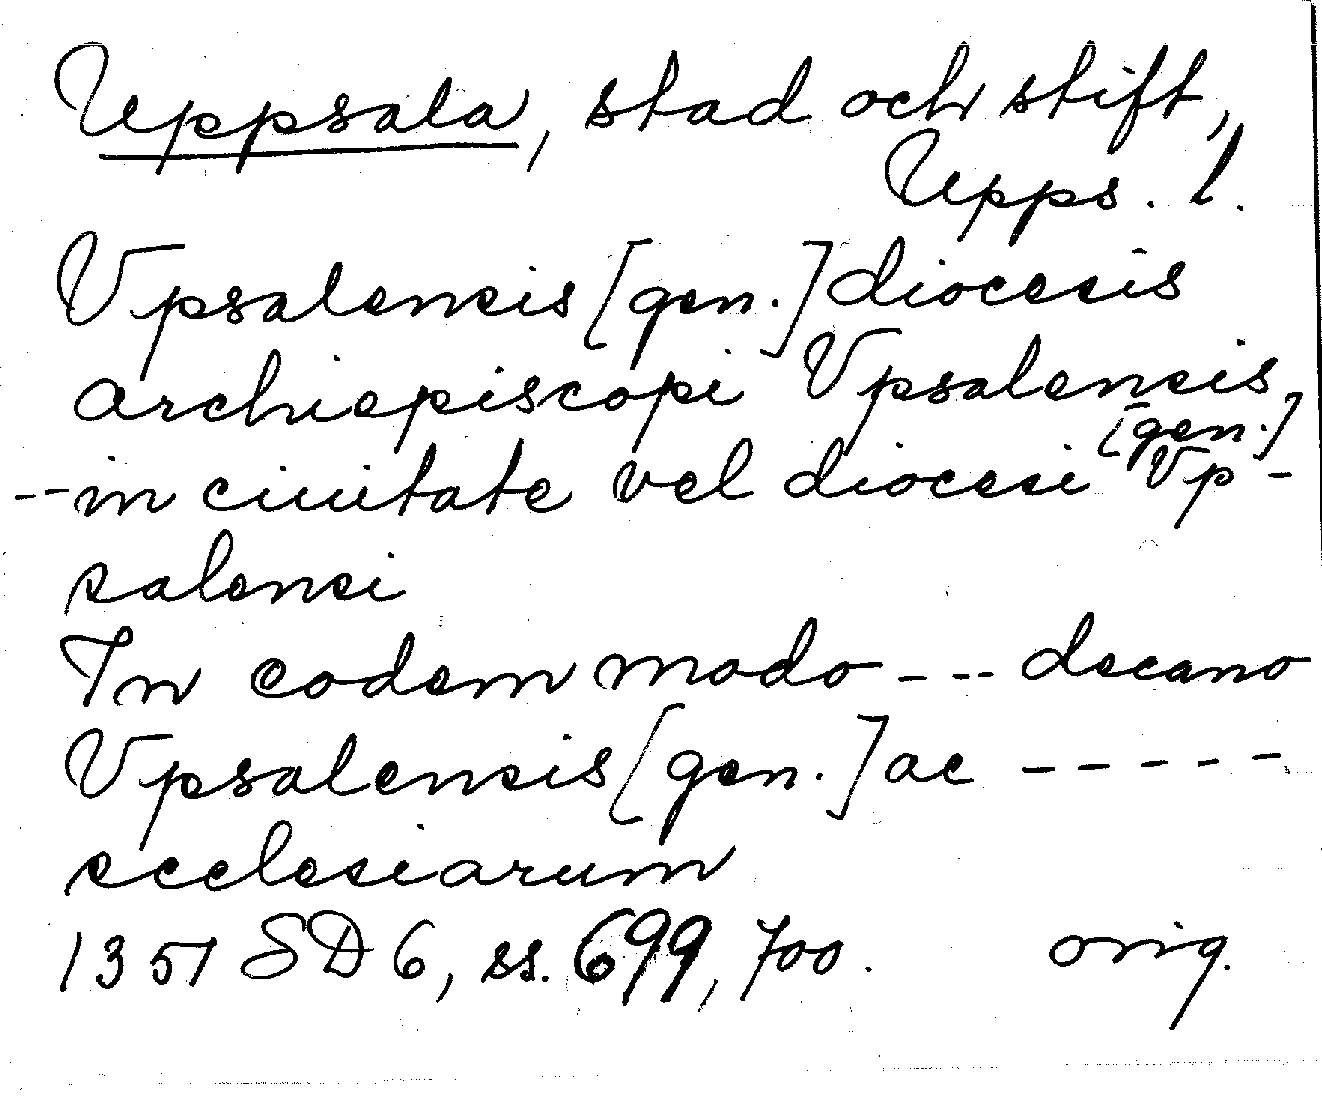 Uppsala, stad och stift,
Upps. l.
Vpsalensis [gen.] diocesis
archiepiscopi Vpsalensis
[gen.]
-- in ciuitate vel diocesi Vp-
salensi
In eodem modo --- decano
Vpsalensis [gen.] ac -----
ecclesiarum
1351 SD 6, ss. 699, 700. orig.